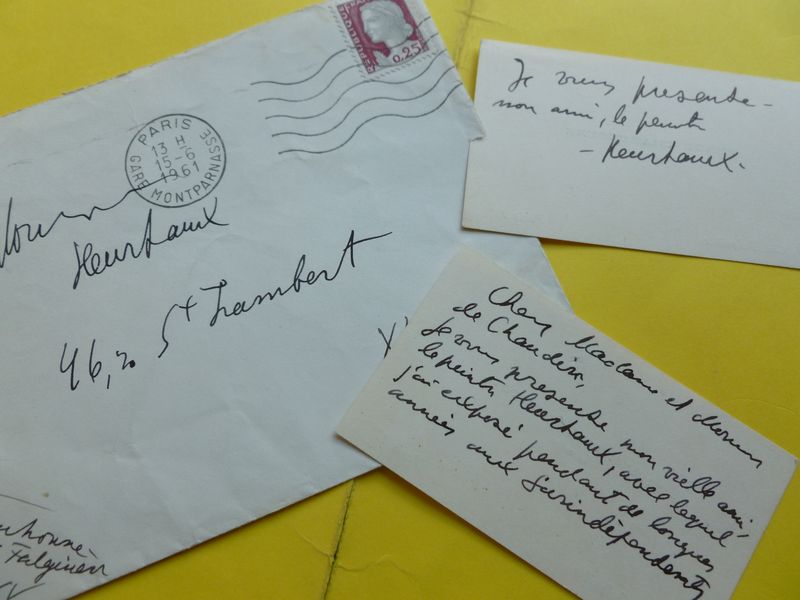 0.25
PARIS
13 H
15-6
1961
GARE MONTPARNASSE
Heurtaux
46, r. St Lambert
Falguière
Je vous présente
mon ami, le peintre
- Heurtaux.
Chers Madame et Monsieur
de Chaudin,
Je vous présente mon vielle ami,
le peintre Heurtaux, avec lequel
j'ai exposé pendant de longues
années aux surindépendents